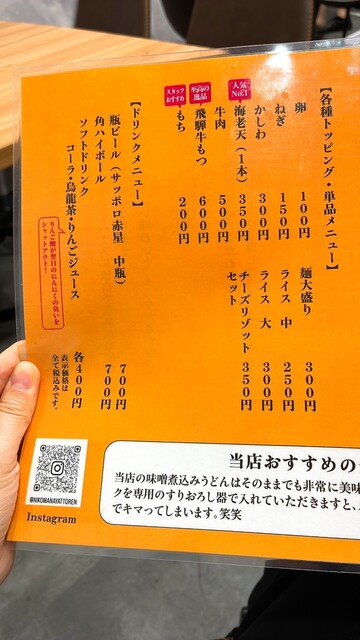 【各種トッピング・単品メニュー】
卵 100円
ねぎ 150円
かしわ 300円
人気No.1
海老天（1本） 350円
牛肉 500円
至高の逸品
飛騨牛もつ 600円
スタッフおすすめ
もち 200円
麺大盛り 300円
ライス 中 250円
ライス 大 300円
チーズリゾットセット 350円
【ドリンクメニュー】
瓶ビール（サッポロ赤星 中瓶） 700円
角ハイボール 700円
ソフトドリンク
コーラ・烏龍茶・りんごジュース 各400円
りんご酸が翌日のにんにくの臭いを
シャットアウト！
表示価格は
全て税込みです。
@NIKOMANAYATTOREN
Instagram
当店おすすめの
当店の味噌煮込みうどんはそのままでも非常に美味
クを専用のすりおろし器で入れていただきますと、
でキマってしまいます。笑笑